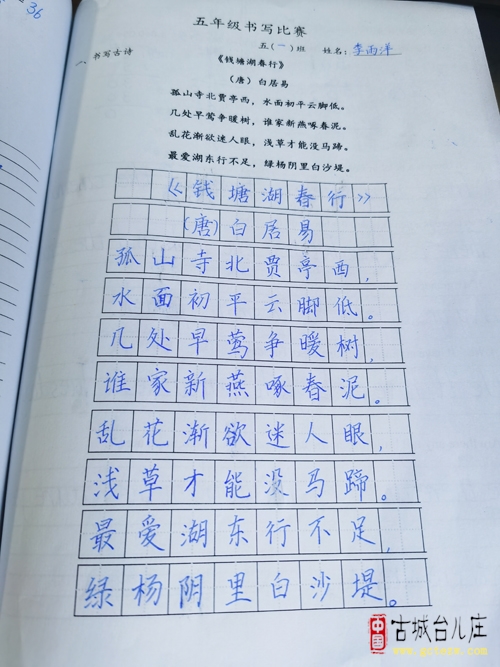 36
五年级书写比赛
五（一）班 姓名：李雨洋
一、书写古诗
《钱塘湖春行》
（唐）白居易
孤山寺北贾亭西，水面初平云脚低。
几处早莺争暖树，谁家新燕啄春泥。
乱花渐欲迷人眼，浅草才能没马蹄。
最爱湖东行不足，绿杨阴里白沙堤。
《钱塘湖春行》
（唐）白居易
孤山寺北贾亭西，
水面初平云脚低。
几处早莺争暖树，
谁家新燕啄春泥。
乱花渐欲迷人眼，
浅草才能没马蹄。
最爱湖东行不足，
绿杨阴里白沙堤。
中国 古城台儿庄